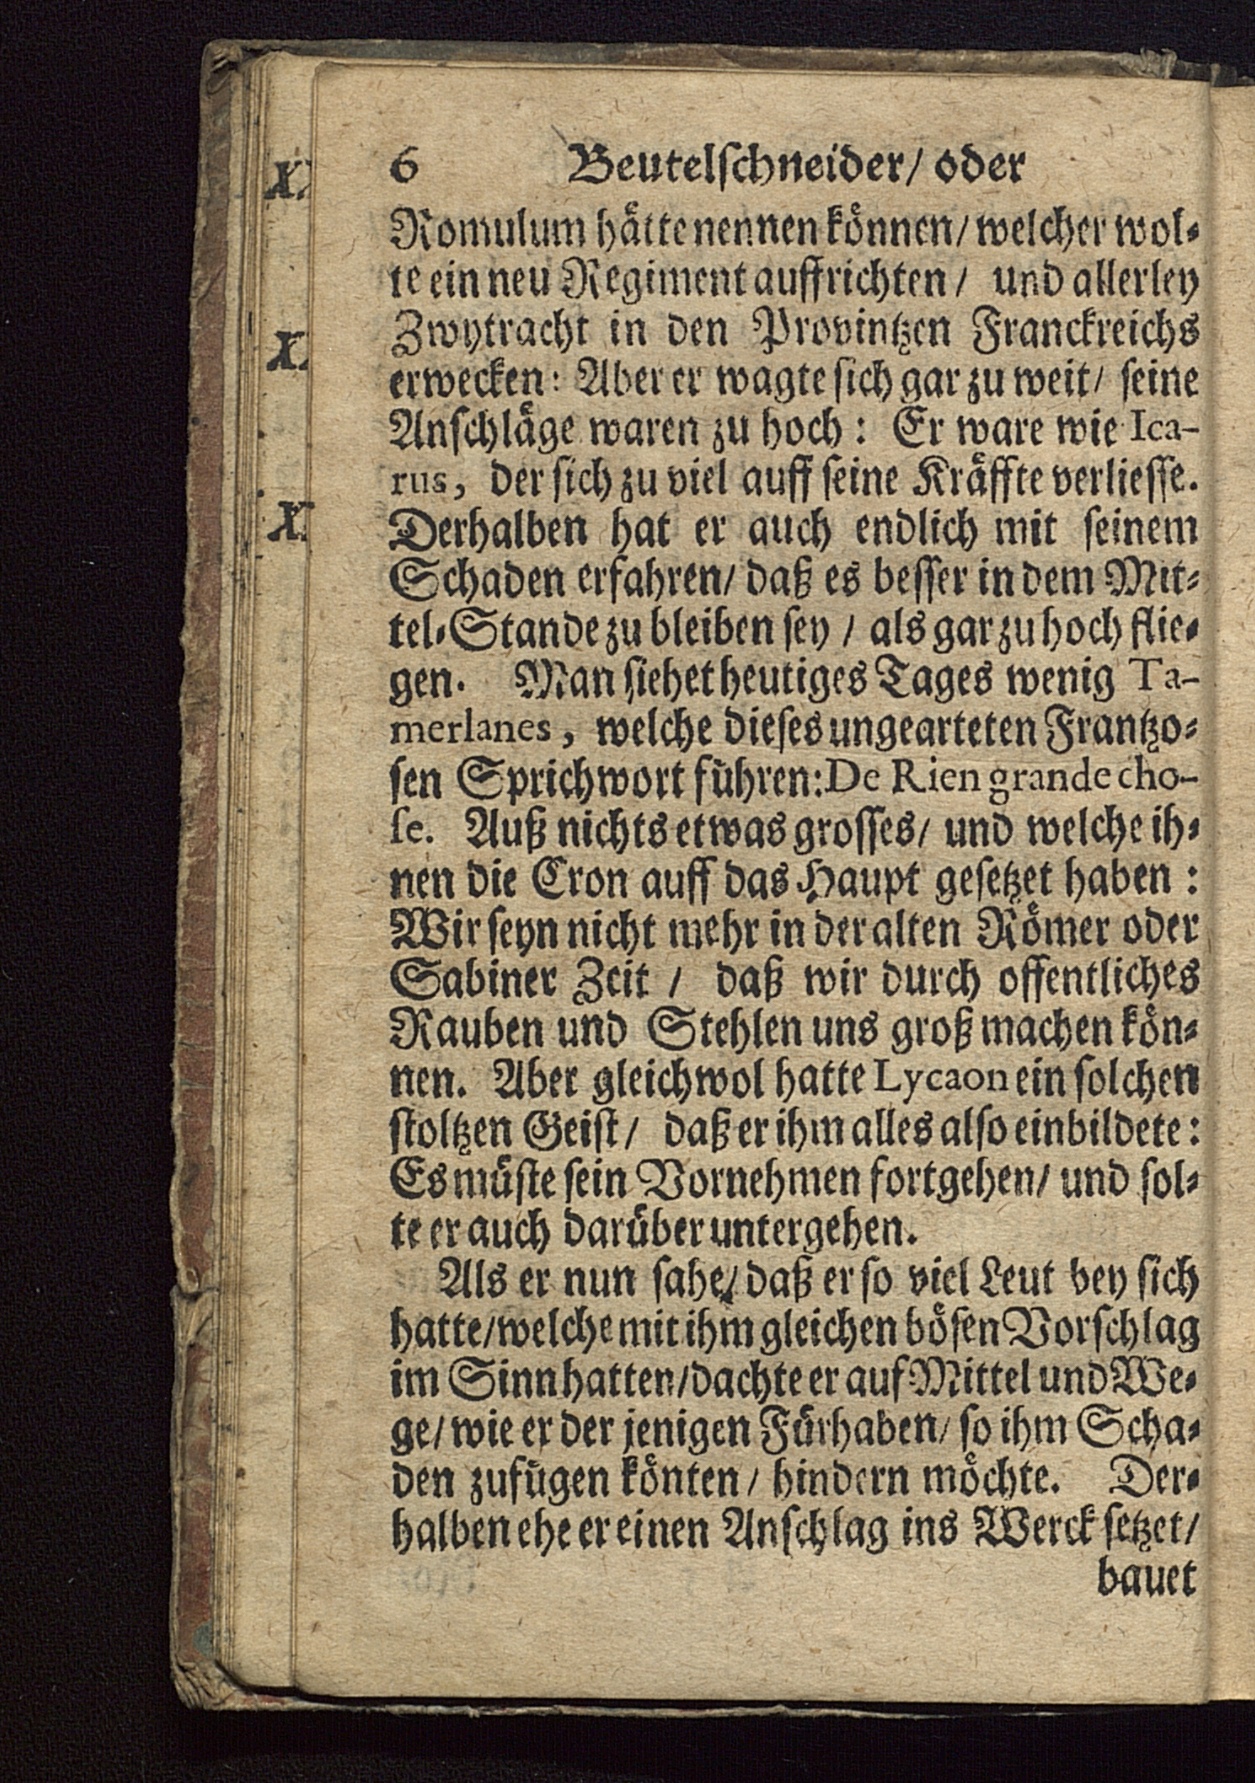 6 Beutelschneider/ oder
Romulum hätte nennen können/ welcher wol-
te ein neu Regiment auffrichten/ und allerley
Zwytracht in den Provintzen Franckreichs
erwecken: Aber er wagte sich gar zu weit/ seine
Anschläge waren zu hoch: Er ware wie Ica-
rus, der sich zu viel auff seine Kräffte verliesse.
Derhalben hat er auch endlich mit seinem
Schaden erfahren/ daß es besser in dem Mit-
tel-Stande zu bleiben sey / als gar zu hoch flie-
gen. Man siehet heutiges Tages wenig Ta-
merlanes, welche dieses ungearteten Frantzo-
sen Sprichwort führen: De Rien grande cho-
se. Auß nichts etwas grosses/ und welche ih-
nen die Cron auff das Haupt gesetzet haben:
Wir seyn nicht mehr in der alten Römer oder
Sabiner Zeit / daß wir durch offentliches
Rauben und Stehlen uns groß machen kön-
nen. Aber gleichwol hatte Lycaon ein solchen
stoltzen Geist/ daß er ihm alles also einbildete:
Es müste sein Vornehmen fortgehen/ und sol-
te er auch darüber untergehen.
Als er nun sahe/ daß er so viel Leut bey sich
hatte/ welche mit ihm gleichen bösen Vorschlag
im Sinn hatten/ dachte er auf Mittel und We-
ge/ wie er der jenigen Fürhaben/ so ihm Scha-
den zufügen könten/ hindern möchte. Der-
halben ehe er einen Anschlag ins Werck setzet/
bauet
X
X
X